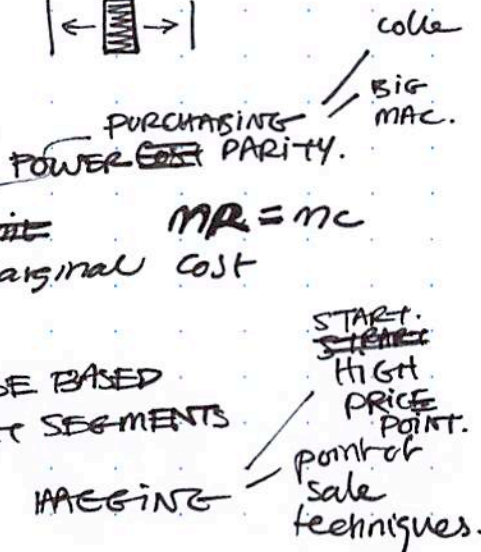 colle
BIG
MAC.
PURCHASING
POWER PARITY.
MR = MC
arginal cost
START.
HIGH
PRICE
POINT.
BASED
SEGMENTS
point of
sale
techniques.